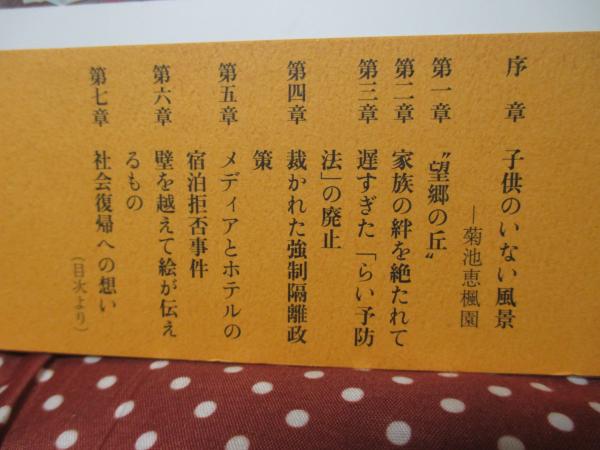 序 章 子供のいない風景
―菊池恵楓園
第一章 〝望郷の丘〟
第二章 家族の絆を絶たれて
第三章 遅すぎた「らい予防
法」の廃止
第四章 裁かれた強制隔離政
策
第五章 メディアとホテルの
宿泊拒否事件
第六章 壁を越えて絵が伝え
るもの
第七章 社会復帰への想い
（目次より）